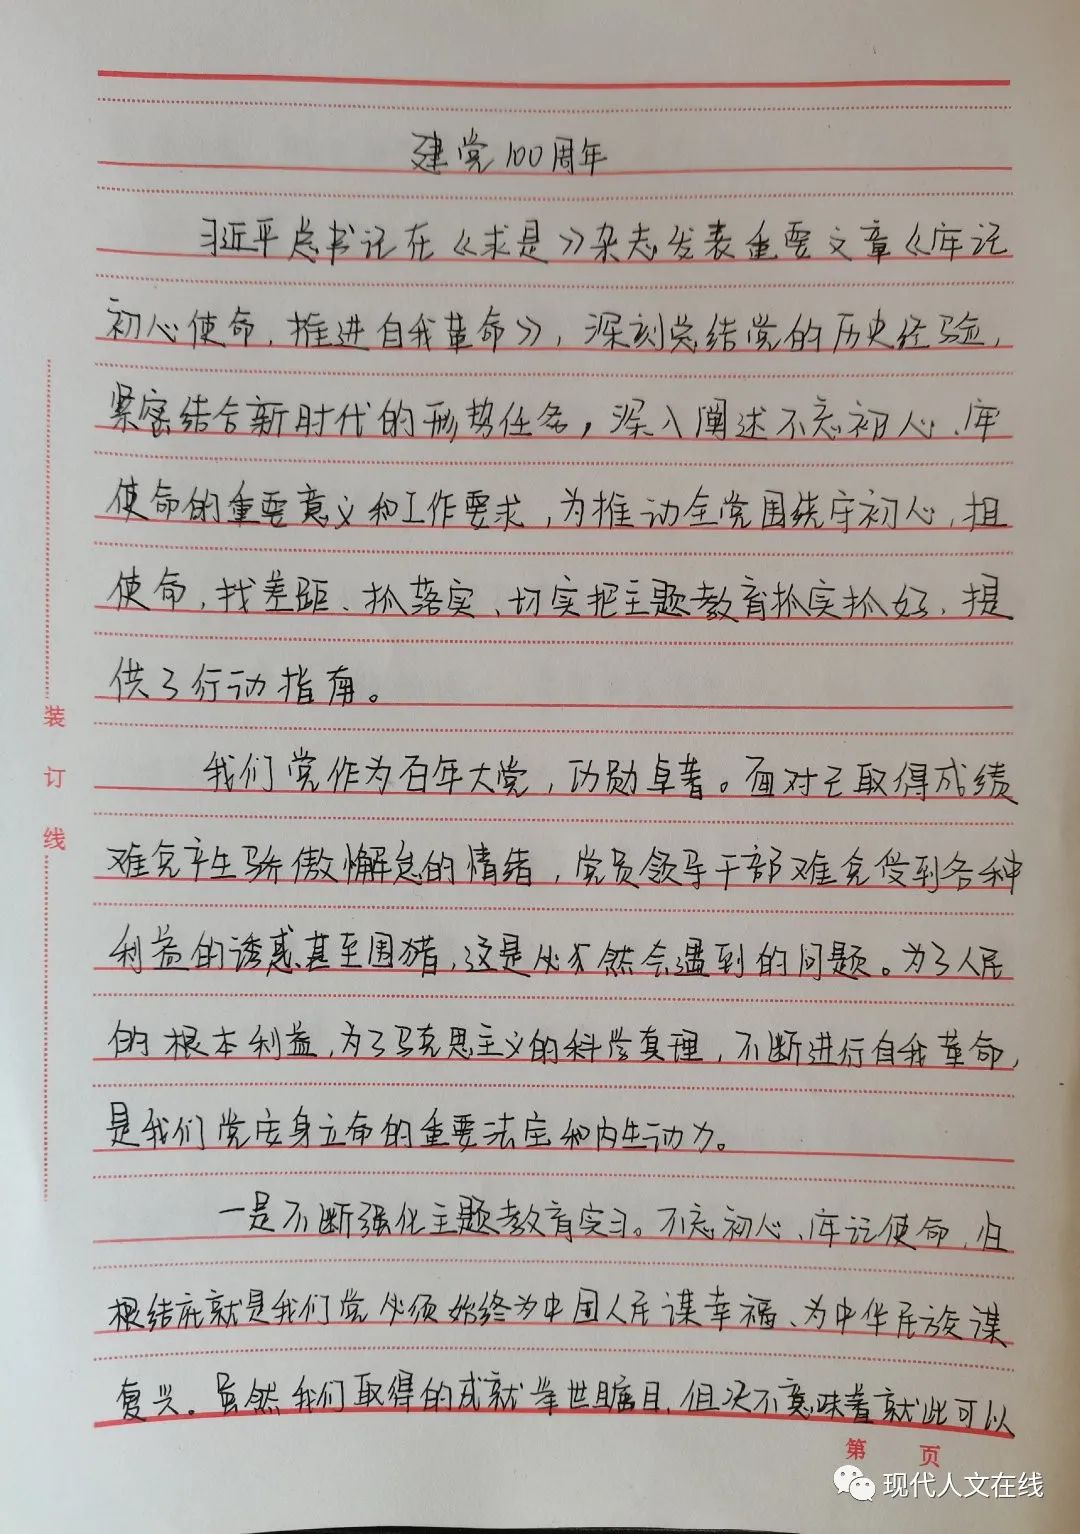 建党100周年
习近平总书记在《求是》杂志发表重要文章《牢记
初心使命，推进自我革命》，深刻总结党的历史经验，
紧密结合新时代的形势任务，深入阐述不忘初心、牢
使命的重要意义和工作要求，为推动全党围绕守初心，担
使命，找差距、抓落实、切实把主题教育抓实抓好，提
供了行动指南。
我们党作为百年大党，功勋卓著。面对已取得成绩
难免产生骄傲懈怠的情绪，党员领导干部难免受到各种
利益的诱惑甚至围猎，这是必然会遇到的问题。为了人民
的根本利益，为了马克思主义的科学真理，不断进行自我革命，
是我们党安身立命的重要法宝和内生动力。
一是不断强化主题教育实习。不忘初心、牢记使命，归
根结底就是我们党必须始终为中国人民谋幸福、为中华民族谋
复兴。虽然我们取得的成就举世瞩目，但决不意味着就此可以
装订线
第 页
现代人文在线